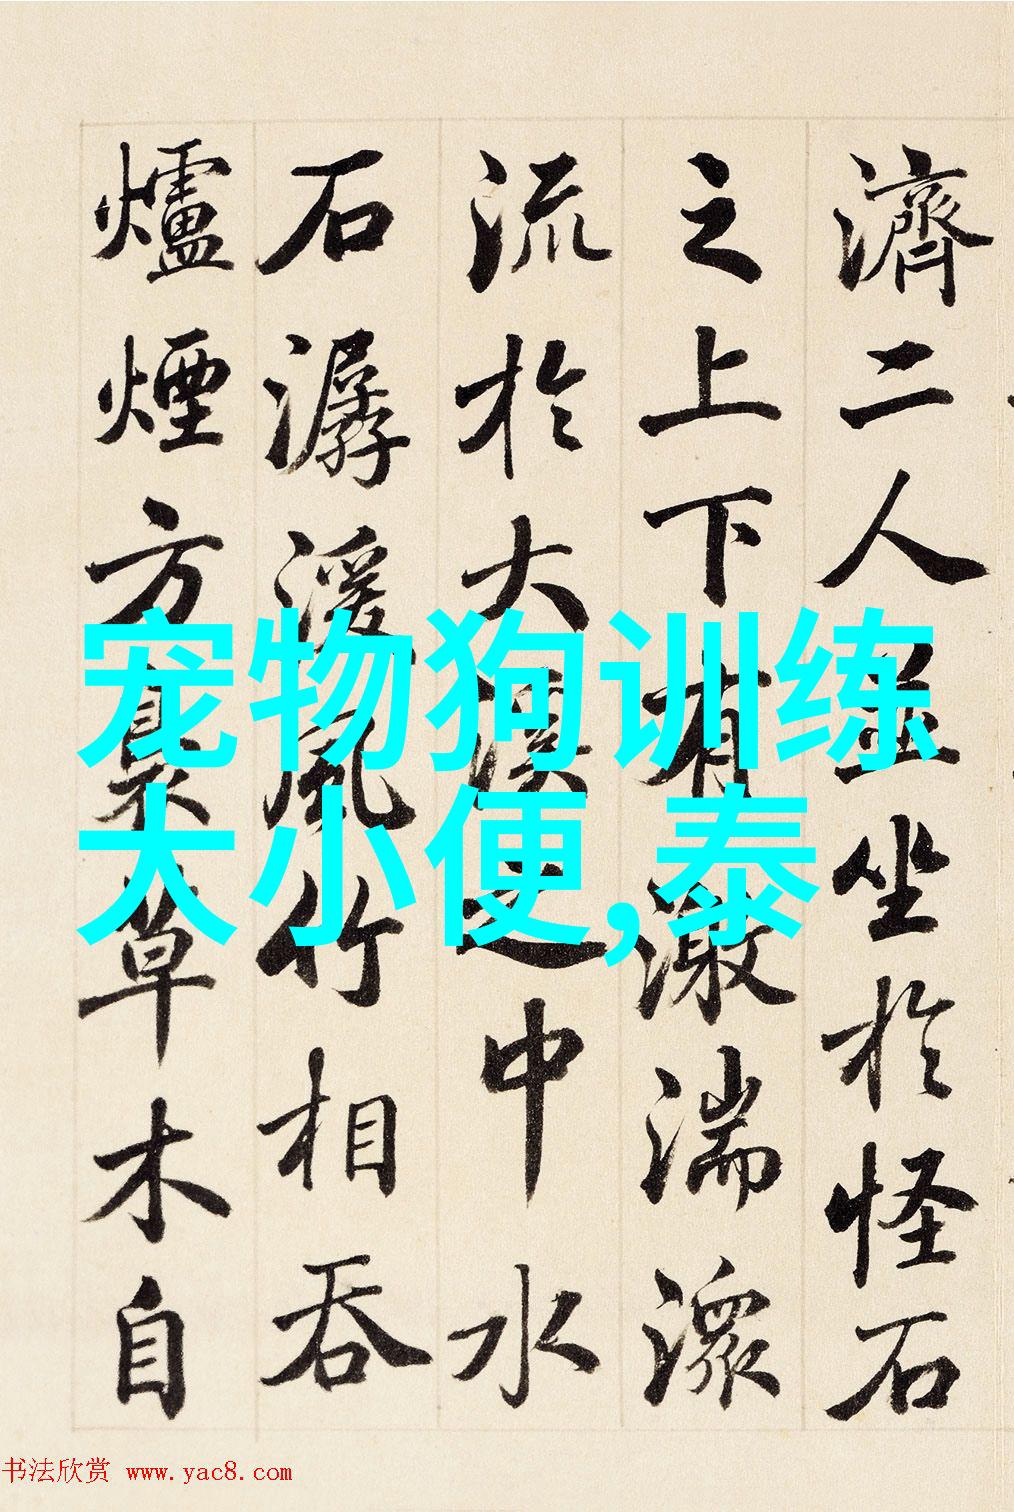 濟二人並坐於怪石
之上下有激湍潀
流於大溪之中水
石潺湲風竹相吞
爐煙方裊草木自
宠物狗训练
大小便,泰
书法欣赏 www.yac8.com